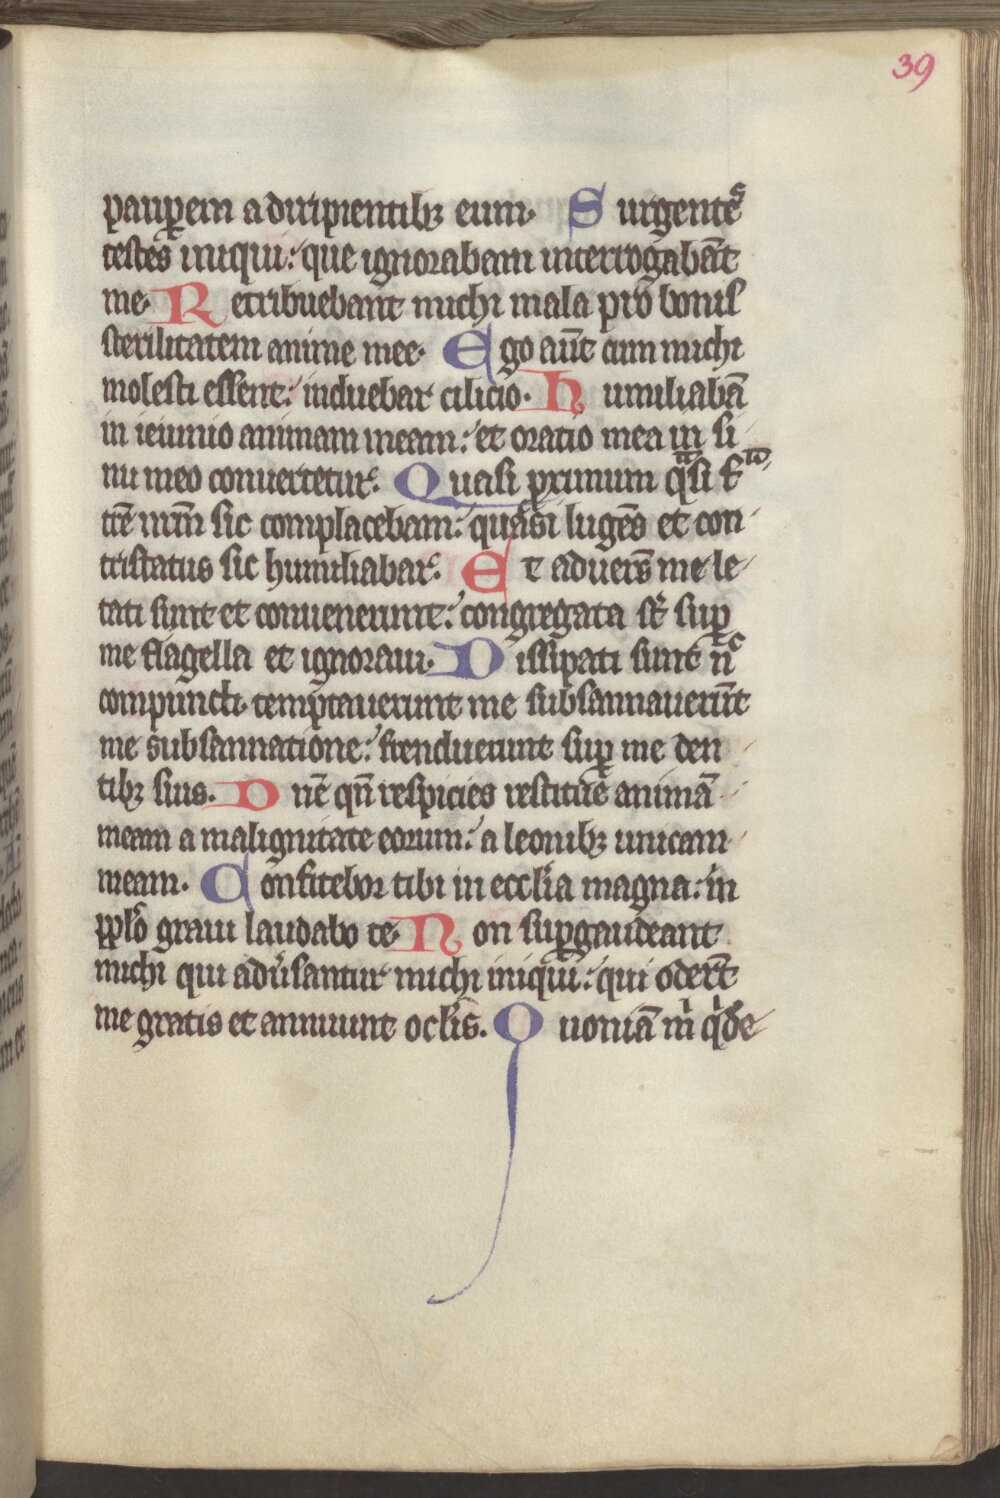 39
paup̱em a diripientibꝫ eum. Surgentes
testes iniqui: que ignorabam interrogabāt
me. Retribuebant michi mala pro bonis
sterilitatem anime mee. Ego aūt cum michi
molesti essent: induebar cilicio. Humiliabā
in ieiunio animam meam: et oratio mea in si
nu meo conuertetur. Quasi ꝓximum qᵃsi fᵃ
trē nr̄m sic complacebam: quasi lugēs et con
tristatus sic humiliabar. Et aduers̄ me le
tati sunt et conuenerunt: congregata st̄ suꝑ
me flagella et ignoraui. Dissipati sunt nᶜ
compuncti. temptauerunt me subsannauerūt
me subsannatione: frenduerunt suꝑ me den
tibꝫ suis. Dn̄e qn̄ respicies restitue animā
meam a malignitate eorum: a leonibꝫ unicam
meam. Confitebor tibi in eccl̄ia magna: in
ppl̄o graui laudabo te. Non suꝑgaudeant
michi qui adūsantur michi inique: qui oder̄t
me gratis et annuunt ocl̄is. Quoniā ṁ qͥde